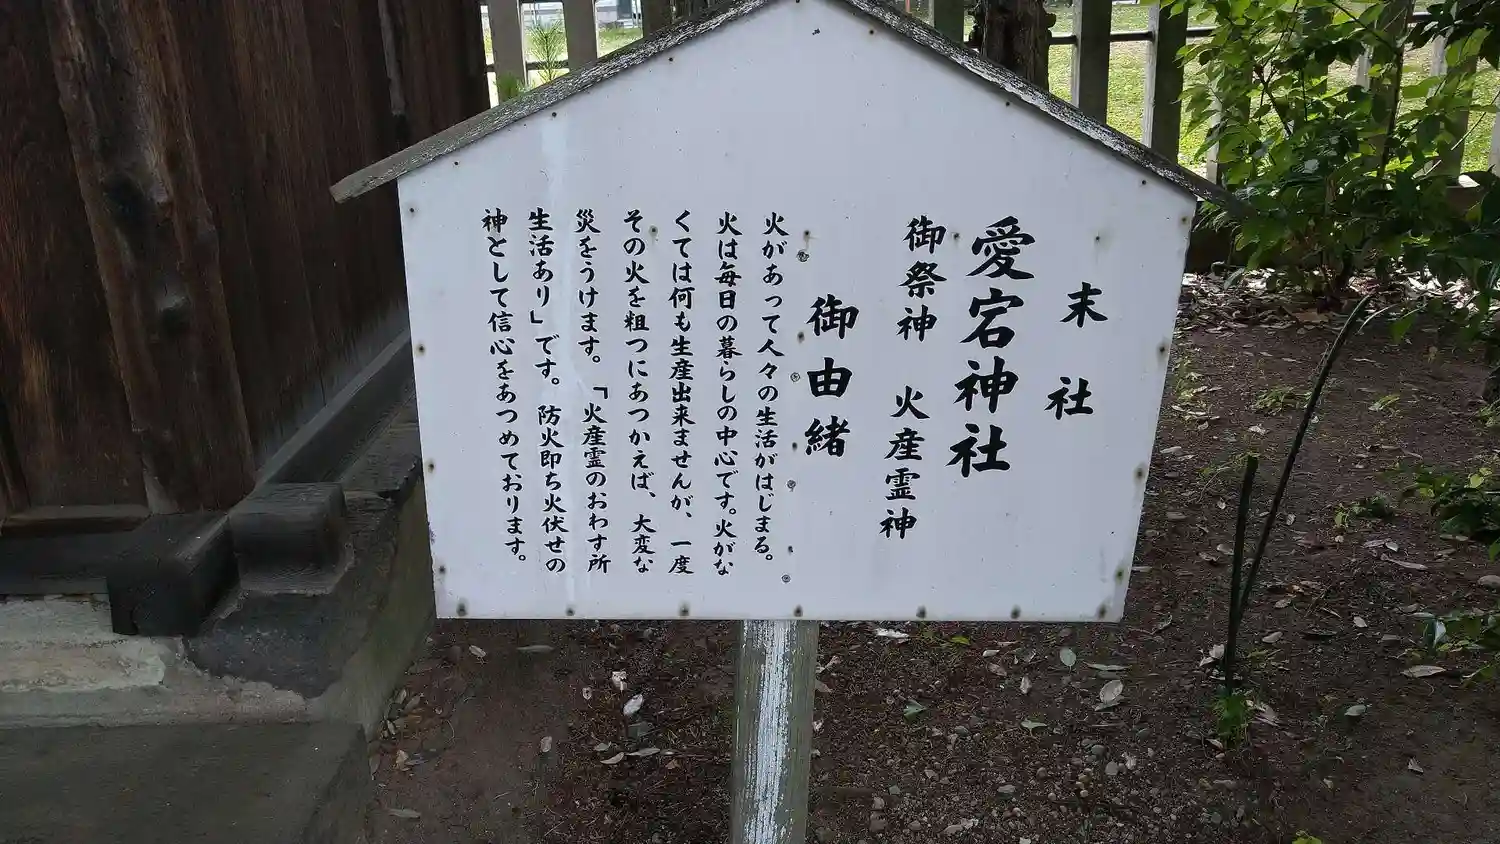 末社
愛宕神社
御祭神 火産霊神
御由緒
火があって人々の生活がはじまる。
火は毎日の暮らしの中心です。火がな
くては何も生産出来ませんが、一度
その火を粗つにあつかえば、大変な
災をうけます。「火産霊のおわす所
生活あり」です。防火即ち火伏せの
神として信心をあつめております。